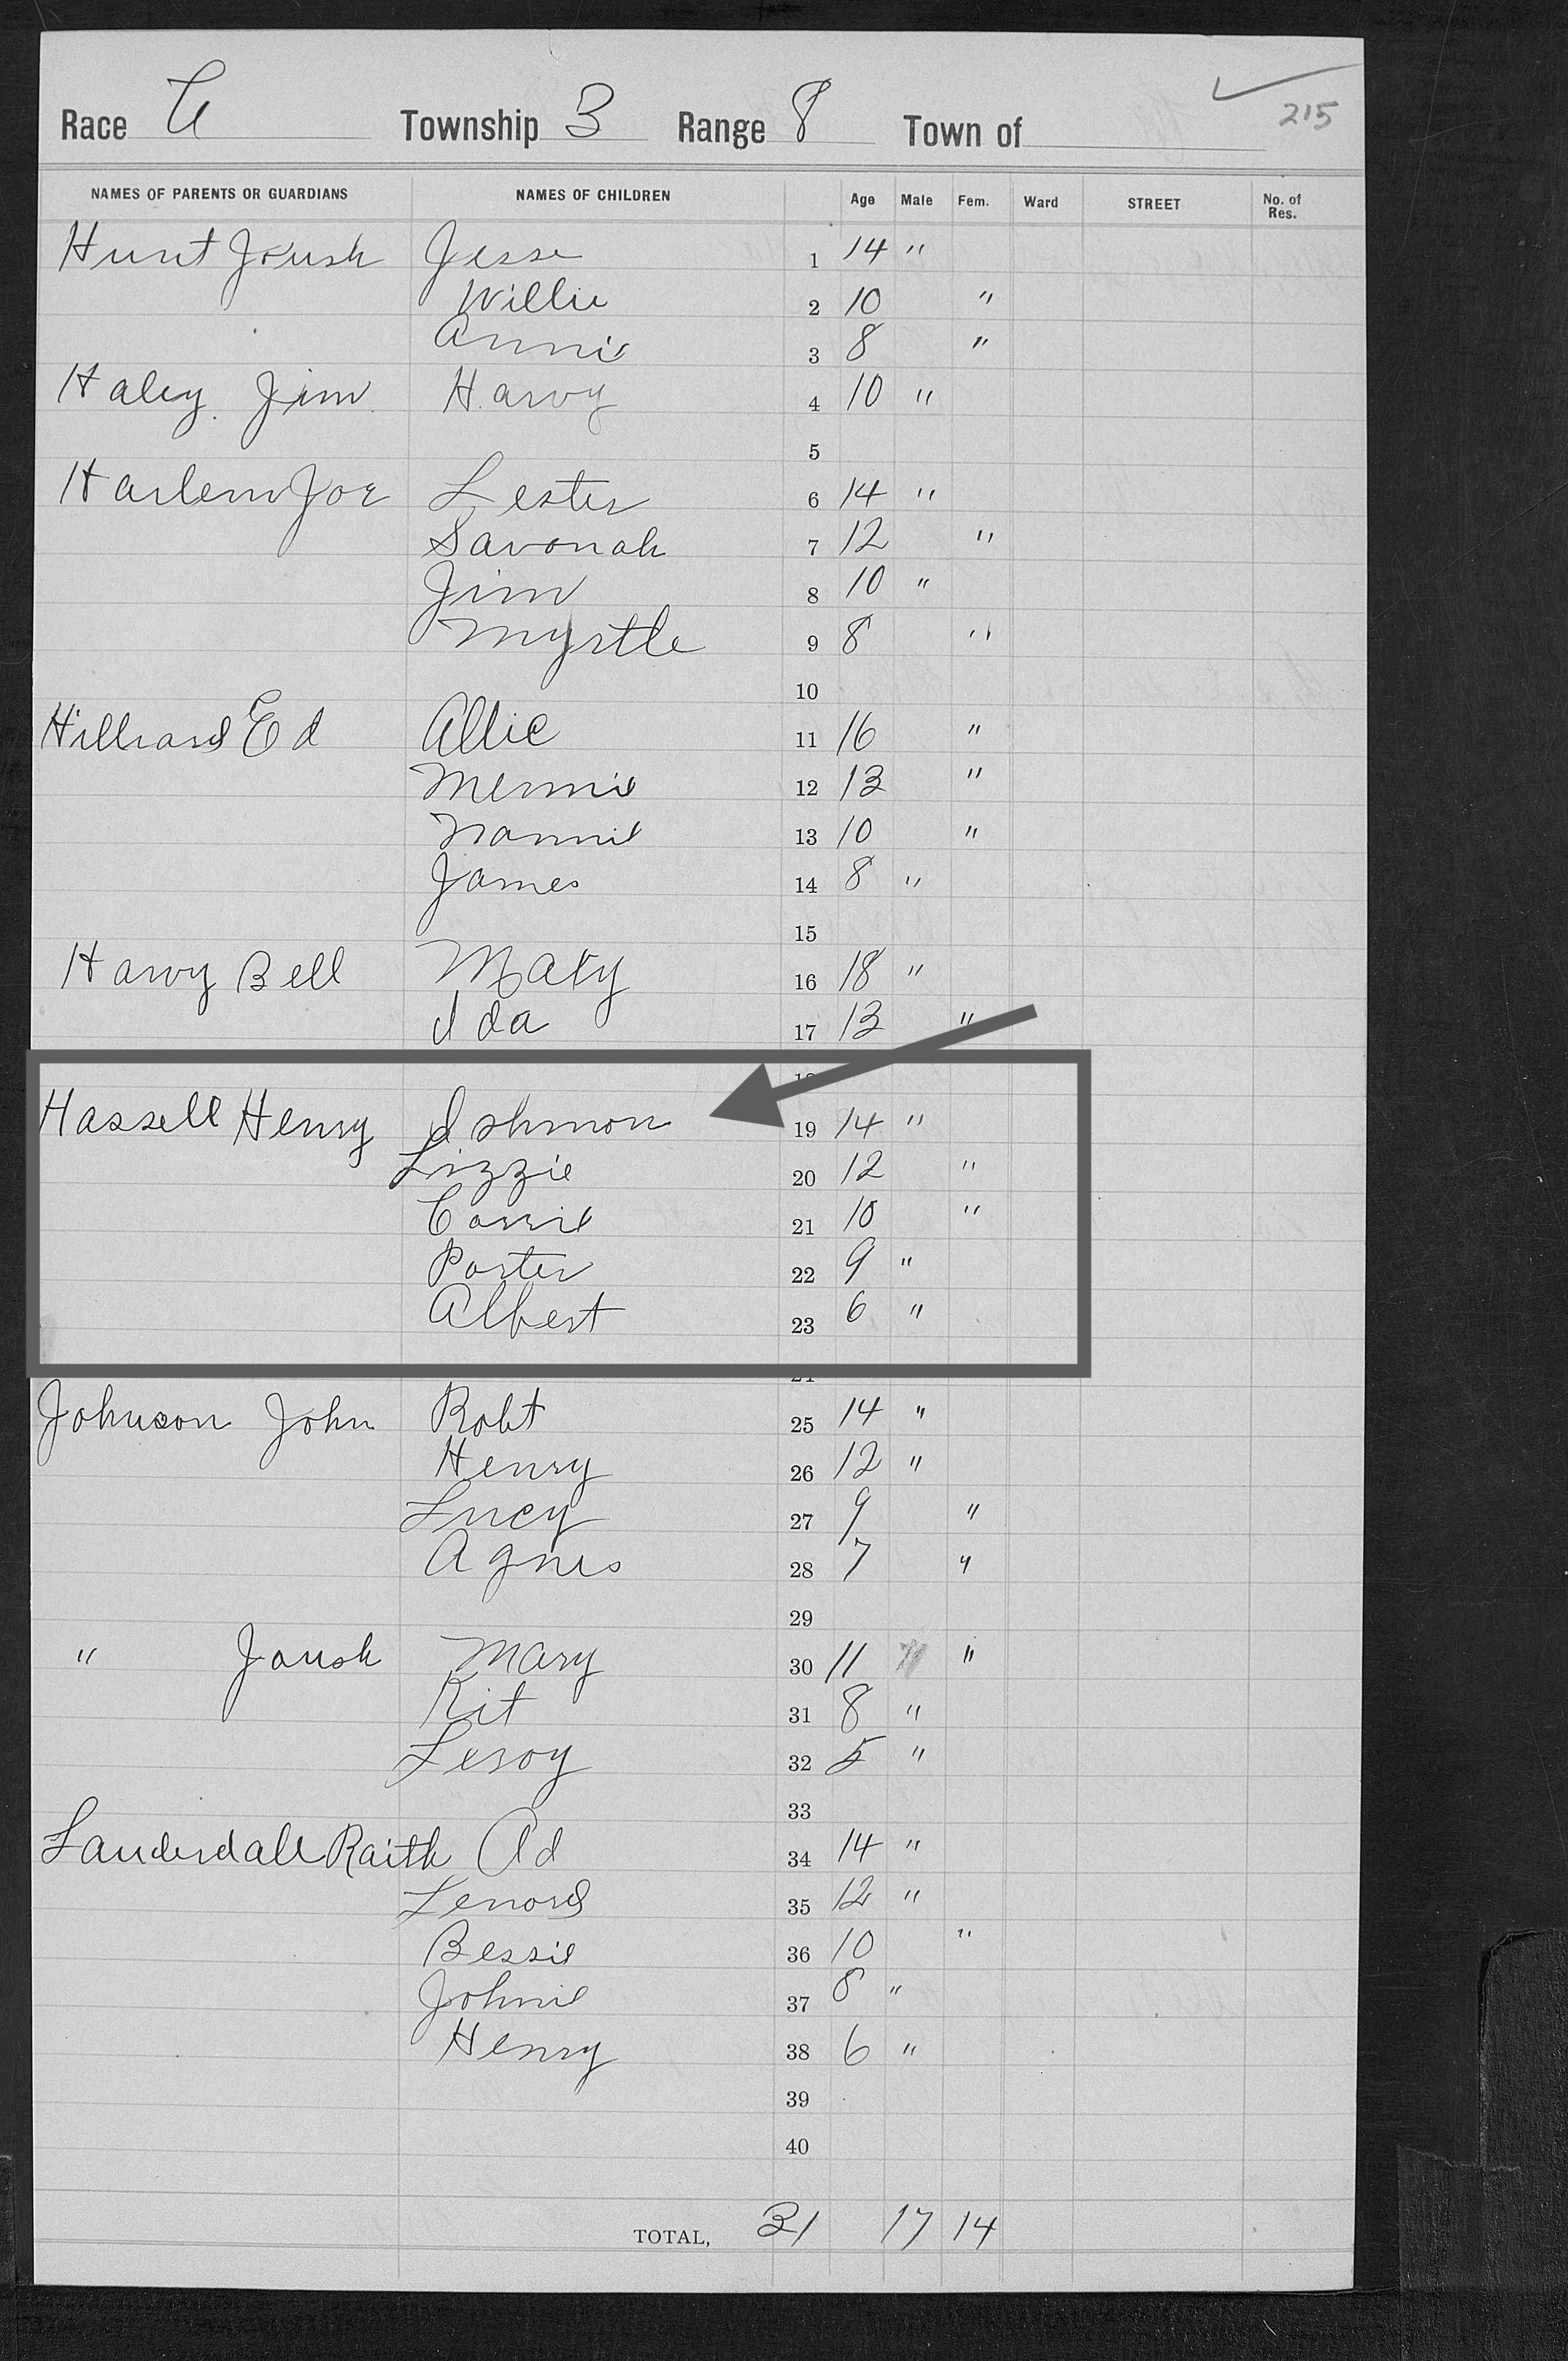 215
Race C Township 3 Range 8 Town of
NAMES OF PARENTS OR GUARDIANS NAMES OF CHILDREN Age Male Fem. Ward STREET No. of Res.
Hunt Joush Jesse 1 14 "
Willie 2 10 "
Annie 3 8 "
Haley Jim Harvy 4 10 "
5
Harlem Joe Lester 6 14 "
Savonah 7 12 "
Jim 8 10 "
Myrtle 9 8 "
10
Hilliard Ed Allie 11 16 "
Mennie 12 13 "
Nannie 13 10 "
James 14 8 "
15
Harvy Bell Maty 16 18 "
Ida 17 13 "
Hassell Henry Ishmon 19 14 "
Lizzie 20 12 "
Carrie 21 10 "
Porter 22 9 "
Albert 23 6 "
Johnson John Robt 25 14 "
Henry 26 12 "
Lucy 27 9 "
Agnes 28 7 "
29
" Joush Mary 30 11 "
Kit 31 8 "
Leroy 32 5 "
33
Lauderdale Raith Ad 34 14 "
Lenord 35 12 "
Bessie 36 10 "
Johnie 37 8 "
Henry 38 6 "
39
40
TOTAL, 31 17 14